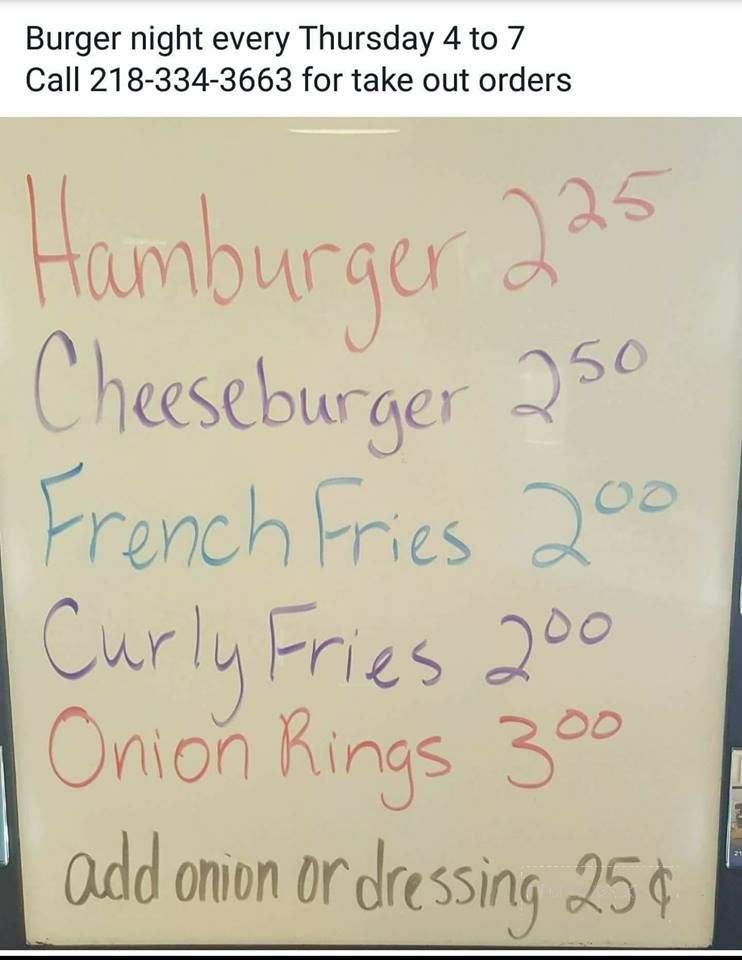 Burger night every Thursday 4 to 7
Call 218-334-3663 for take out orders
Hamburger 2 25
Cheeseburger 2 50
French Fries 2 00
Curly Fries 2 00
Onion Rings 3 00
add onion or dressing 25¢